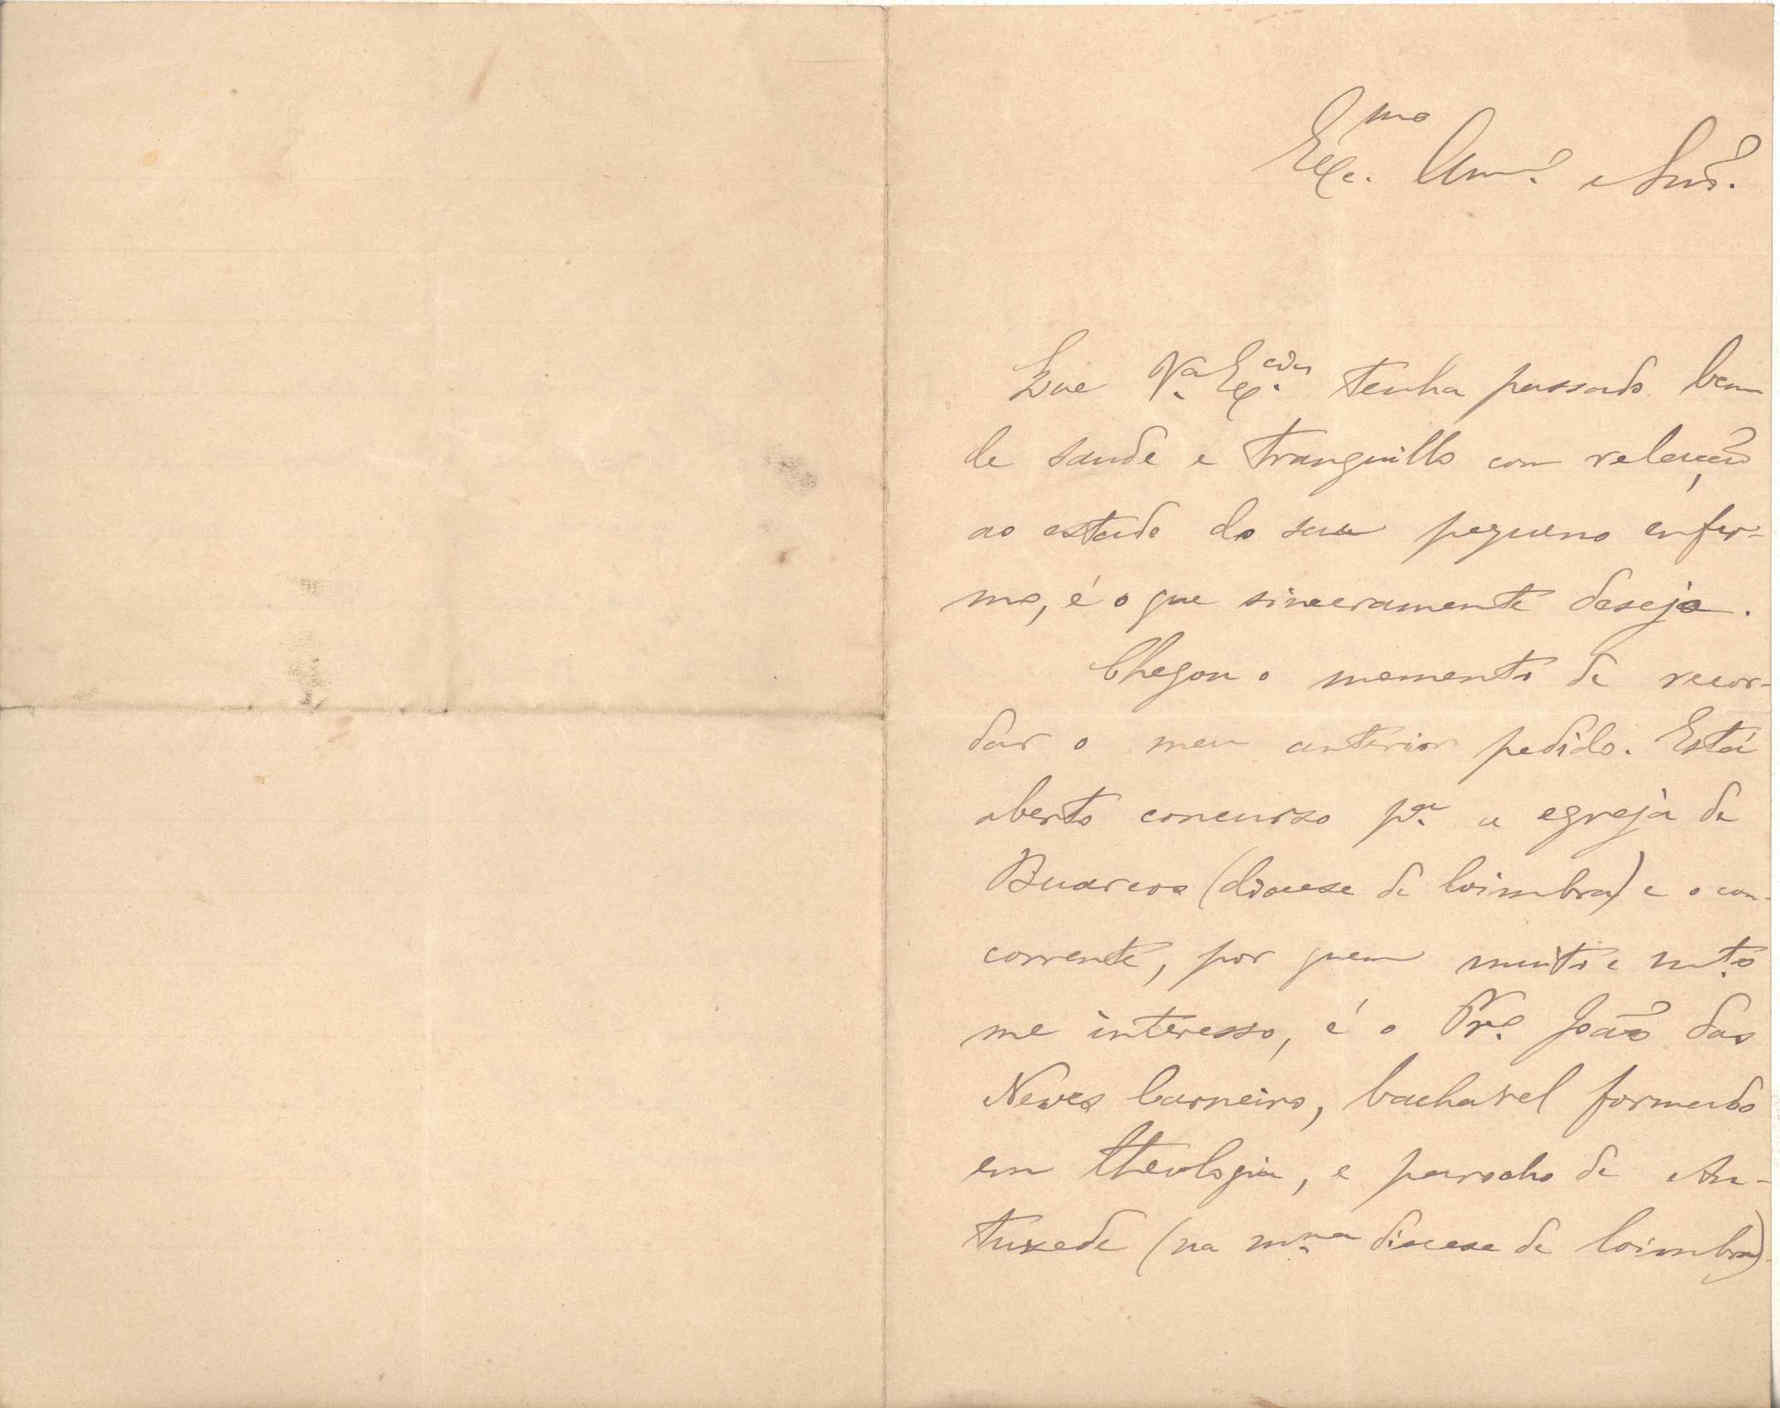 Exc.mo Am.o e Snr.
Que V.a Ex.cia tenha passado bem
de saude e tranquillo com relação
ao estado do seu pequeno enfer-
mo, é o que sinceramente desejo.
Chegou o momento de recor-
dar o meu anterior pedido. Está
aberto concurso p.a a egreja de
Buarcos (diocese de Coimbra) e o con-
corrente, por quem muito e m.to
me interesso, é o Pr.e João das
Neves Carneiro, bacharel formado
em theologia, e parocho de An-
tuzede (na m.ma diocese de Coimbra).